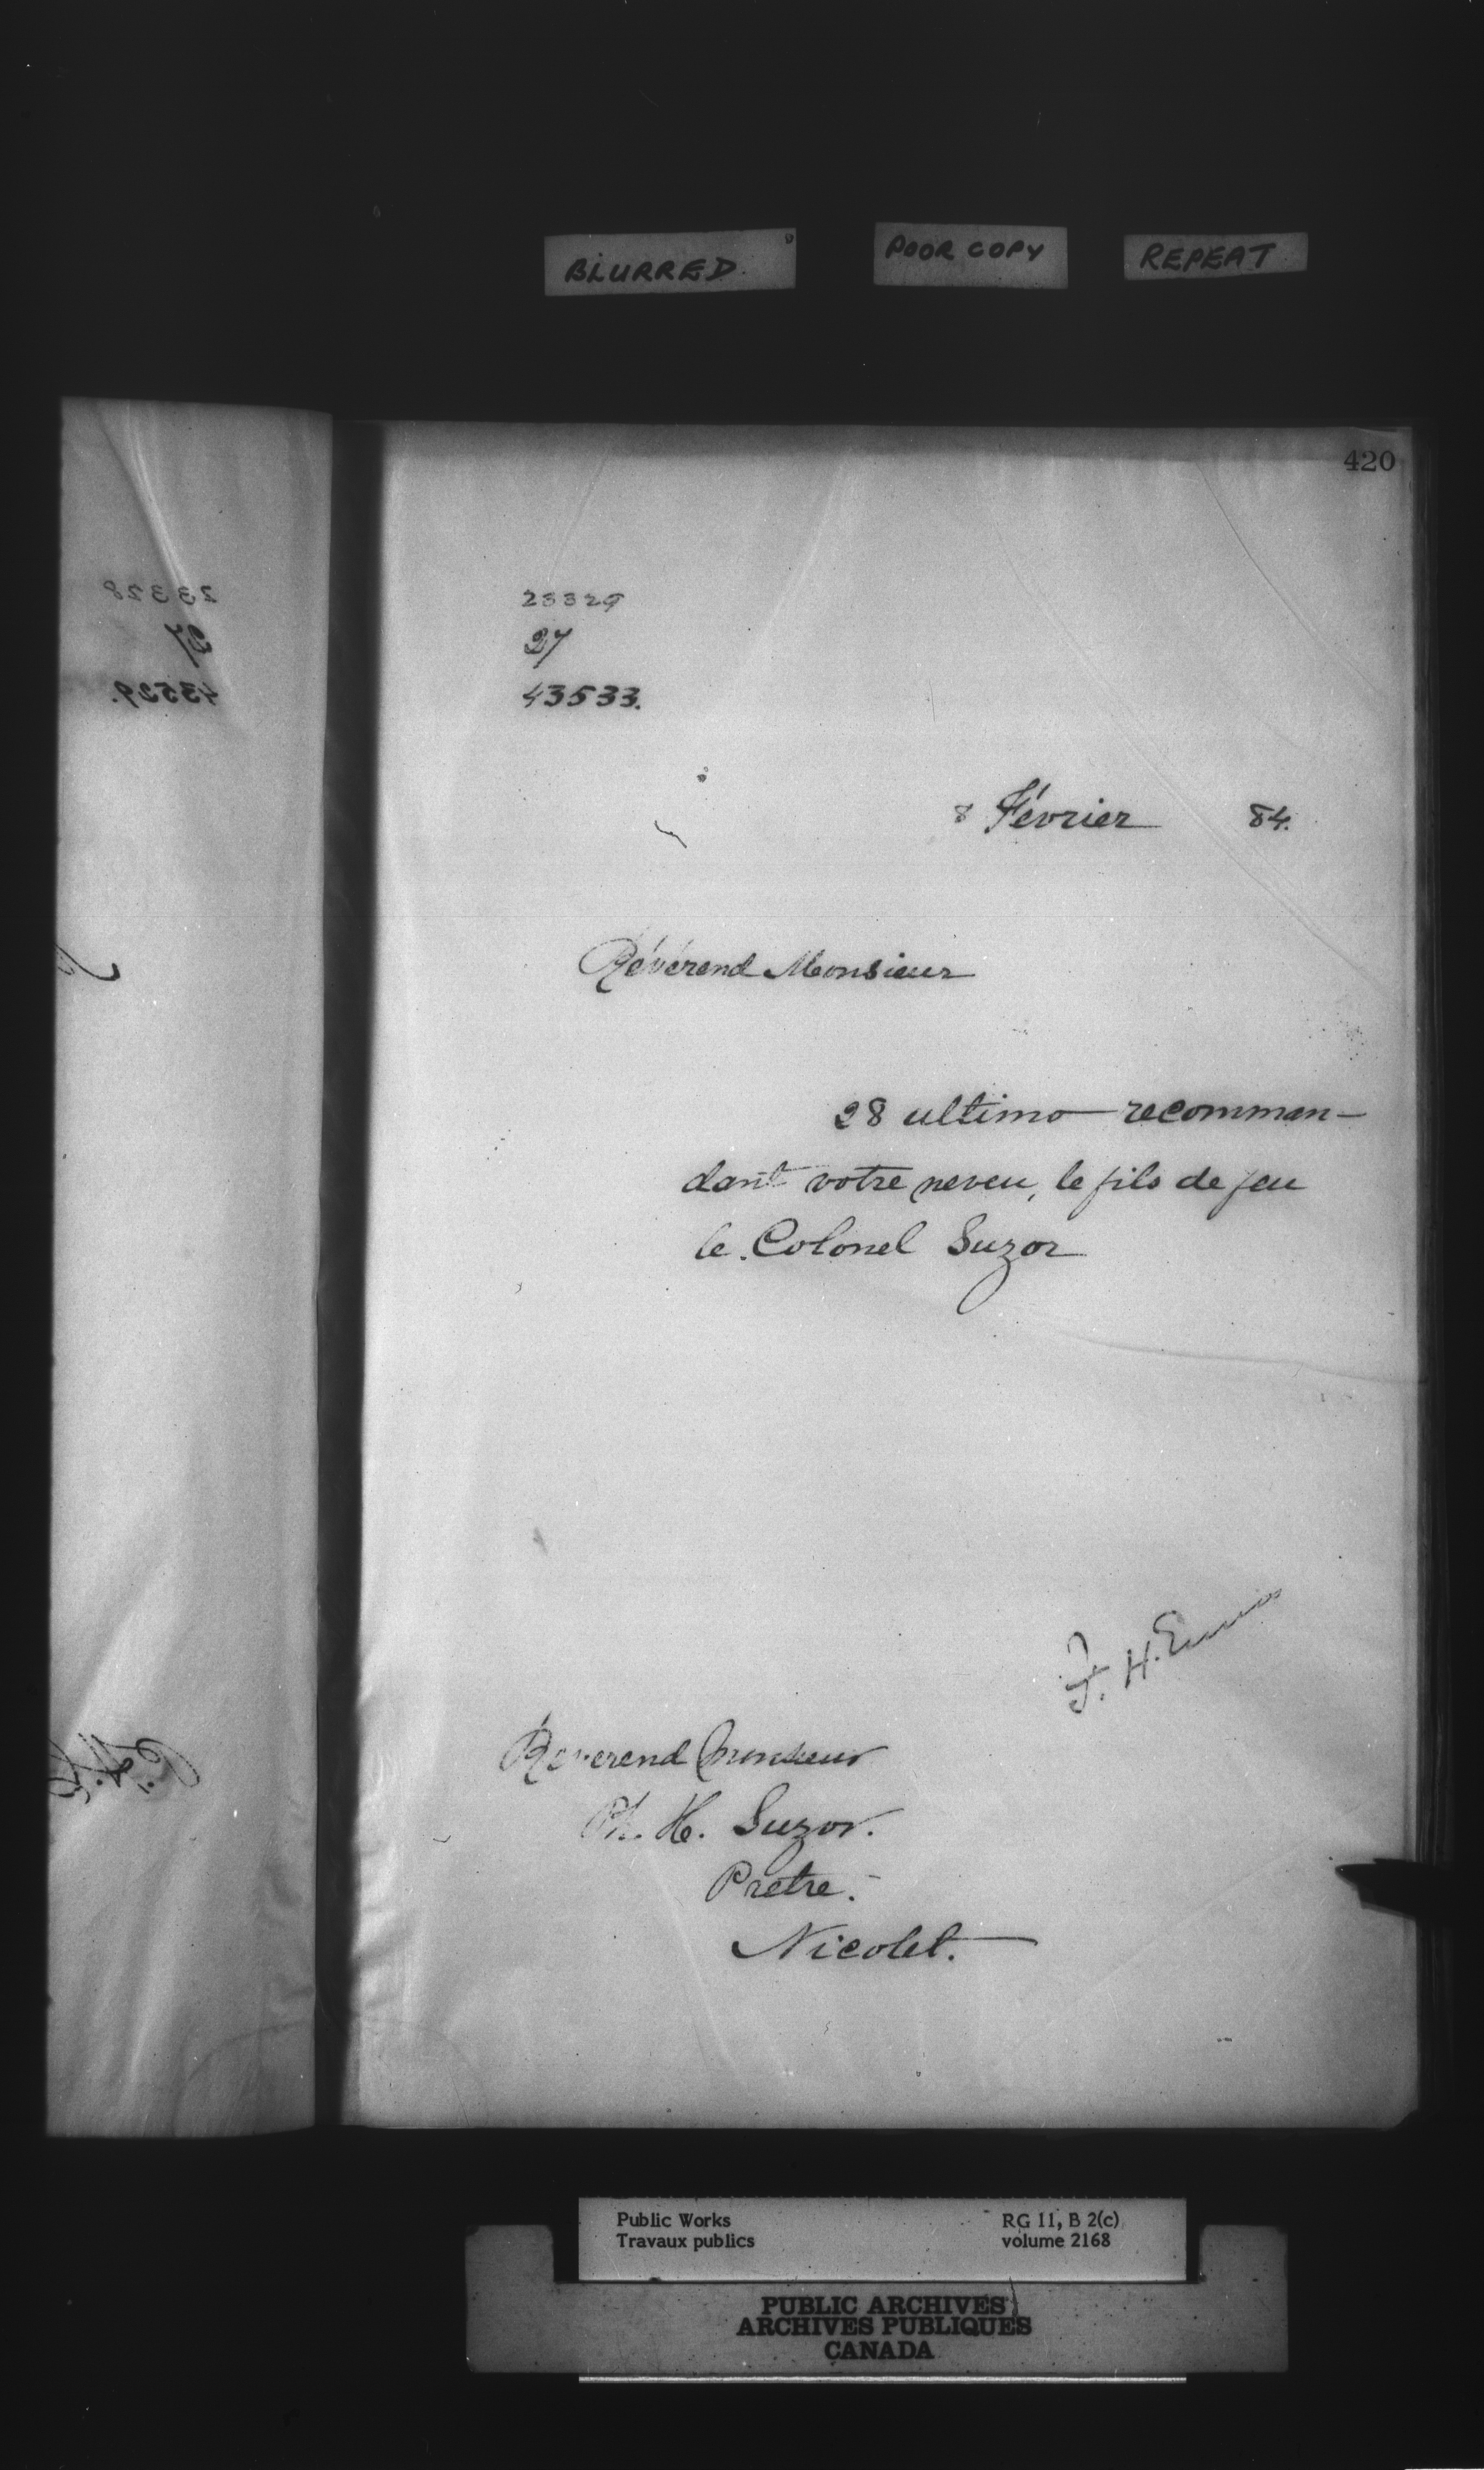 BLURRED.
POOR COPY
REPEAT
420
23328
27
43529.
23329
27
43533.
8 Février 84.
Révérend Monsieur
28 ultimo recomman-
dant votre neveu, le fils de feu
le Colonel Suzor
F. H. Ennis
Réverend Monsieur
Ph. H. Suzor.
Prêtre.
Nicolet.
Public Works
Travaux publics
RG 11, B 2(c)
volume 2168
PUBLIC ARCHIVES
ARCHIVES PUBLIQUES
CANADA